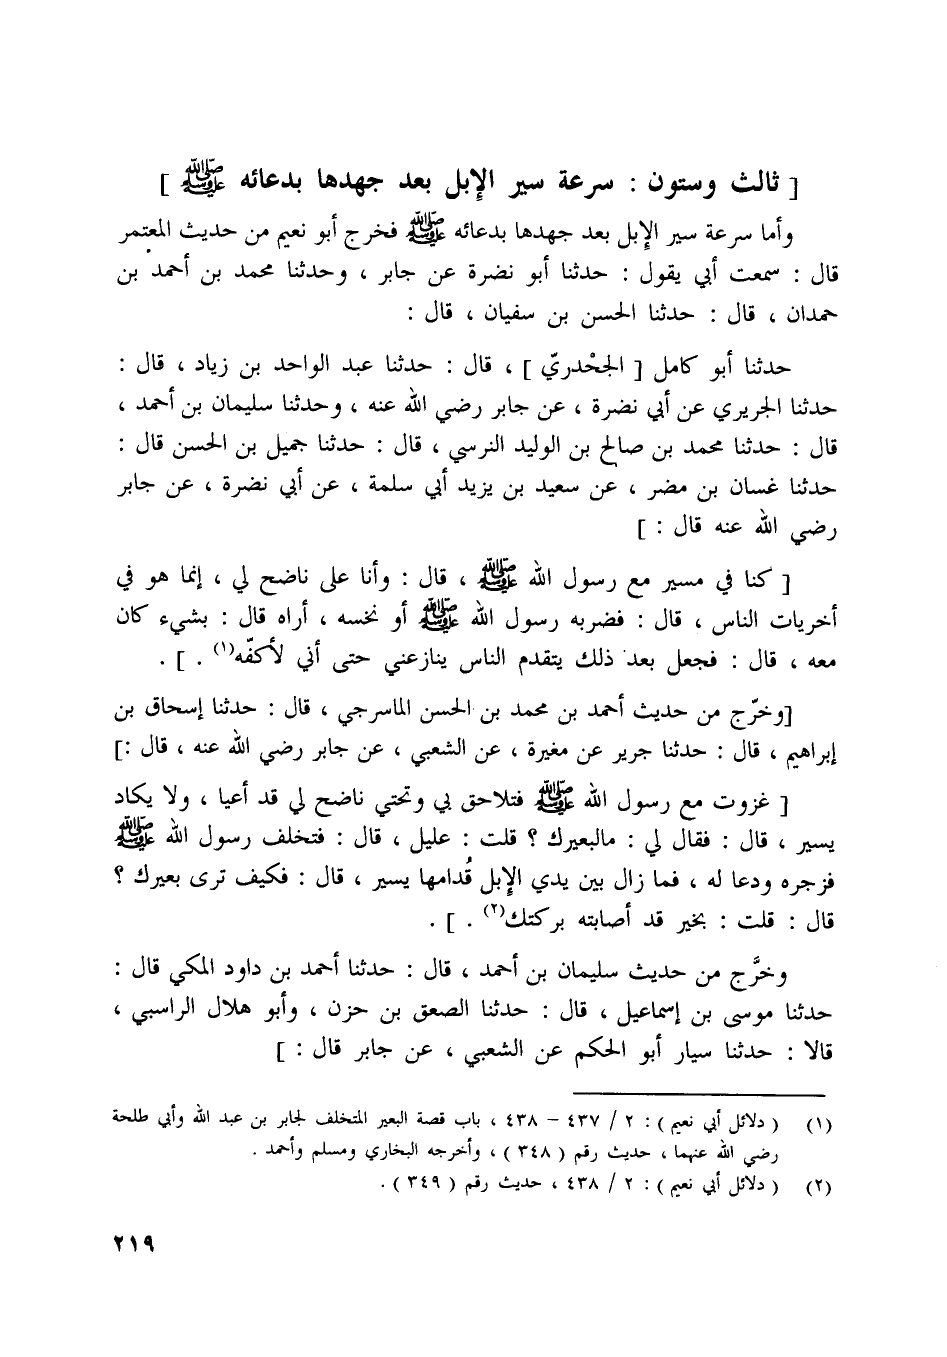 [ ثالث وستون : سرعة سير الإبل بعد جهدها بدعائه ﷺ ]
وأما سرعة سير الإبل بعد جهدها بدعائه ﷺ فخرج أبو نعيم من حديث المعتمر
قال : سمعت أبي يقول : حدثنا أبو نضرة عن جابر ، وحدثنا محمد بن أحمد بن
حمدان ، قال : حدثنا الحسن بن سفيان ، قال :
حدثنا أبو كامل [ الجحْدريّ ] ، قال : حدثنا عبد الواحد بن زياد ، قال :
حدثنا الجريري عن أبي نضرة ، عن جابر رضي الله عنه ، وحدثنا سليمان بن أحمد ،
قال : حدثنا محمد بن صالح بن الوليد النرسي ، قال : حدثنا جميل بن الحسن قال :
حدثنا غسان بن مضر ، عن سعيد بن يزيد أبي سلمة ، عن أبي نضرة ، عن جابر
رضي الله عنه قال : ]
[ كنا في مسير مع رسول الله ﷺ ، قال : وأنا على ناضح لي ، إنما هو في
أخريات الناس ، قال : فضربه رسول الله ﷺ أو نخسه ، أراه قال : بشيء كان
معه ، قال : فجعل بعد ذلك يتقدم الناس ينازعني حتى أني لأكفّه(١) . ] .
[وخرّج من حديث أحمد بن محمد بن الحسن الماسرجي ، قال : حدثنا إسحاق بن
إبراهيم ، قال : حدثنا جرير عن مغيرة ، عن الشعبي ، عن جابر رضي الله عنه ، قال :]
[ غزوت مع رسول الله ﷺ فتلاحق بي وتحتي ناضح لي قد أعيا ، ولا يكاد
يسير ، قال : فقال لي : مالبعيرك ؟ قلت : عليل ، قال : فتخلف رسول الله ﷺ
فزجره ودعا له ، فما زال بين يدي الإبل قُدامها يسير ، قال : فكيف ترى بعيرك ؟
قال : قلت : بخير قد أصابته بركتك(٢) . ] .
وخرَّج من حديث سليمان بن أحمد ، قال : حدثنا أحمد بن داود المكي قال :
حدثنا موسى بن إسماعيل ، قال : حدثنا الصعق بن حزن ، وأبو هلال الراسبي ،
قالا : حدثنا سيار أبو الحكم عن الشعبي ، عن جابر قال : ]
(١) ( دلائل أبي نعيم ) : ٢ / ٤٣٧ – ٤٣٨ ، باب قصة البعير المتخلف لجابر بن عبد الله وأبي طلحة
رضي الله عنهما ، حديث رقم ( ٣٤٨ ) ، وأخرجه البخاري ومسلم وأحمد .
(٢) ( دلائل أبي نعيم ) : ٢ / ٤٣٨ ، حديث رقم ( ٣٤٩ ) .
٢١٩